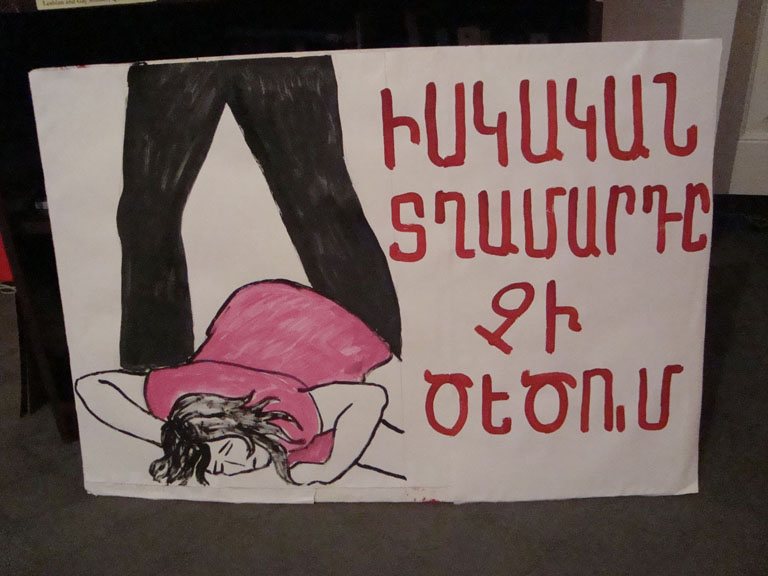 ԻՍԿԱԿԱՆ
ՏՂԱՄԱՐԴԸ
ՉԻ
ԾԵԾՈՒՄ